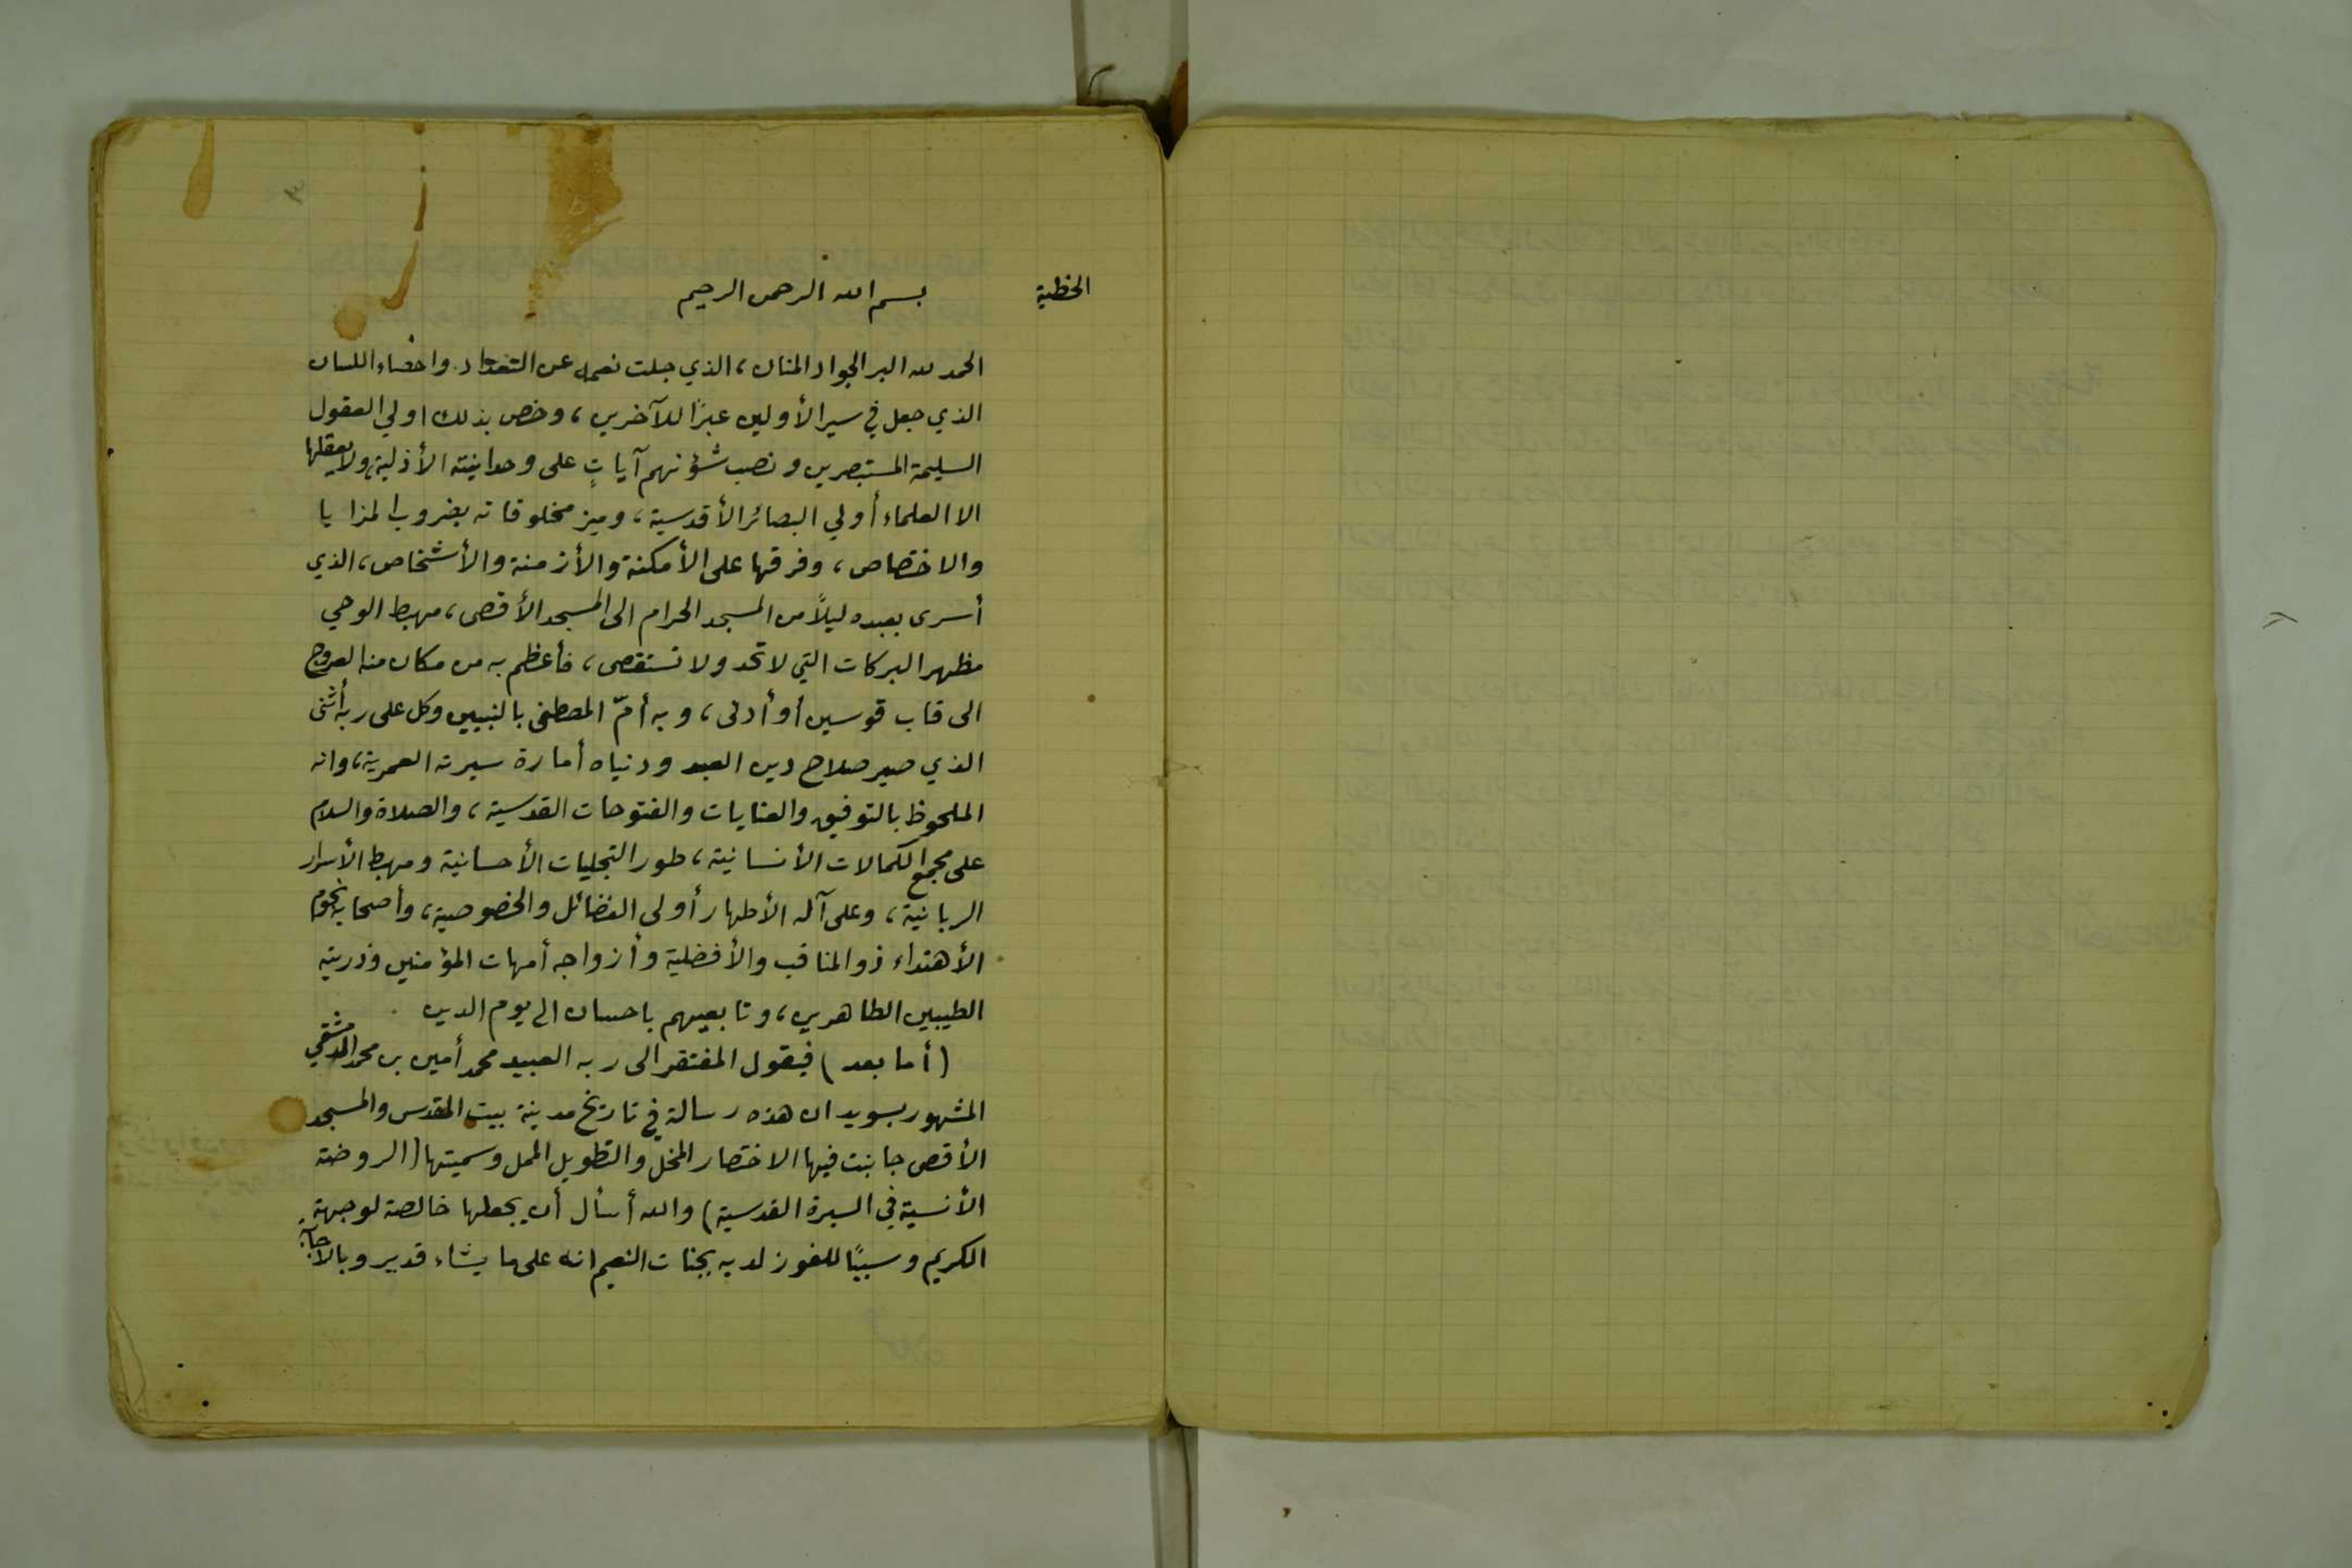 ٣
الخطبة
بسم الله الرحمن الرحيم
الحمد لله البر الجواد المنان، الذي جلت نعمه عن التعداد واحصاء اللسان
الذي جعل في سير الأولين عبرًا للآخرين، وخص بذلك اولي العقول
السليمة المستبصرين ونصب شؤنهم آياتٍ على وحدانيته الأزلية، ولا يعقلها
الا العلماء أولي البصائر الأقدسية، وميز مخلوقاته بضروب المزايا
والاختصاص، وفرقها على الأمكنة والأزمنة والأشخاص، الذي
أسرى بعبده ليلاً من المسجد الحرام الى المسجد الأقصى، مهبط الوحي
مظهر البركات التي لا تحد ولا تستقصى، فأعظم به من مكان منه العروج
الى قاب قوسين أو أدنى، وبه أمّ المصطفى بالنبيين وكل على ربه أثنى
الذي صير صلاح دين العبد ودنياه أمارة سيرته العمرية، وانه
الملحوظ بالتوفيق والعنايات والفتوحات القدسية، والصلاة والسلام
على مجمع الكمالات الأنسانية، طور التجليات الأحسانية ومهبط الأسرار
الربانية، وعلى آله الأطهار أولى الفضائل والخصوصية، وأصحابه نجوم
الأهتداء ذو المناقب والأفضلية وأزواجه أمهات المؤمنين وذريته
الطيبين الطاهرين، وتابعيهم باحسان الى يوم الدين
(أما بعد) فيقول المفتقر الى ربه العبيد محمد أمين بن محمد الدمشقي
المشهور بسويد ان هذه رسالة في تاريخ مدينة بيت المقدس والمسجد
الأقصى جانبت فيها الاختصار المخل والتطويل الممل وسميتها (الروضة
الأنسية في السيرة القدسية) والله أسأل أن يجعلها خالصة لوجهة
الكريم وسببًا للفوز لديه بجنات النعيم انه على ما يشاء قدير وبالاجابة